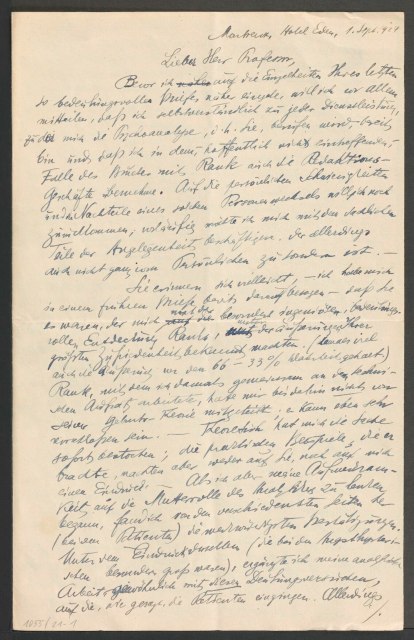 Hotel Eden, 1. Sept. 924
Lieber Herr Professor,
Bevor ich auf die Einzelheiten Ihres letzten
so bedeutungsvollen Briefes näher eingehe, will ich vor allem
mitteilen, daß ich selbstverständlich zu jeder Dienstleistung,
zu der mich die Psychoanalyse, i.h. Sie, berufen wird bereit
bin und daß ich in dem, hoffentlich nicht eintreffenden,
Falle des Bruches mit Rank auch die Redaktions-
geschäfte übernehme. Auf die persönlichen Schwierigkeiten
und Nachteile eines solchen Personenwechsels will ich noch
zurückkommen; vorläufig möchte ich mich mit den sachlichen
Teile der Angelegenheit beschäftigen, der allerdings
auch nicht ganz vom Persönlichen zu sondern ist. —
Sie erinnern sich vielleicht, — ich habe mich
in einem früheren Briefe bereits darauf bezogen — daß Sie
es waren, der mich auf die besonders, bedeutungs-
vollen Entdeckung Ranks, der
größten Zufriedenheit machten.
auch die Äußerung von den 66 – 33 %
Rank, mit dem ich damals gemeinsam an der techni-
schen Aufsatz arbeitete, hatte mir bis dahin nichts von
seiner Geburts-Theorie mitgeteilt, er kann eben sehr
verschlossen sein. — Theoretisch hat mich die Sache
sofort bestochen; die praktischen Beispiele, die er
brachte, machten aber weder auf Sie, noch auf mich
einen Eindruck. — Als ich aber meine Aufmerksam-
keit auf die Mutterrolle des Analytikers zu lenken
begann, fand ich von den verschiedensten Seiten her
(bei den Patienten) die merkwürdigsten Bestätigungen.
Unter dem Eindruck derselben (die bei den Angsthysteri-
schen besonders groß waren), ergänzte ich meine analytische
Arbeit gewöhnlich mit diesen Deutungsversuchen,
auf die, wie gesagt, die Patienten eingingen. Allerdings
1055/21-1